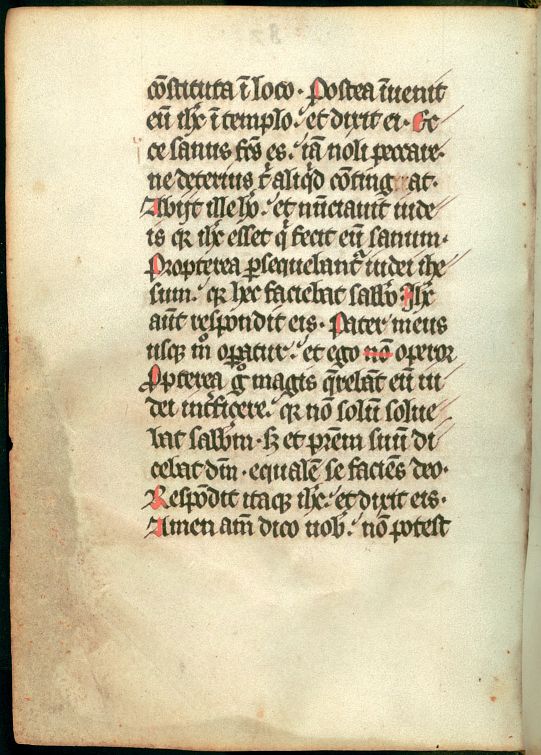 cōstituta ī loco. Postea īuenit
eū ihc̄ ī templo. et dixit ei. Ec
ce sanus fcs̄ es. iā noli peccare.
ne deterius t̄ aliqd̄ cōtingat.
Abijt ille hō. et nūciauit iude
is qꝛ ihc̄ esset q̄ fecit eū sanum.
Propterea ꝑsequebant᷑ iudei ihe
sum. qꝛ hec faciebat sabbō. Ihc̄
aūt respondit eis. Pater meus
usqꝫ mō oꝑatur. et ego nō operor
Ꝓpterea gͦ magis q̄rebāt eū iu
dei int̄ficere. qꝛ nō solū solue
bat sabbm̄. sꝫ et pr̄em suū di
cebat dm̄. equalē se faciēs deo.
Respōdit itaqꝫ ihc̄. et dixit eis.
Amen am̄ dico uob̄. nō potest